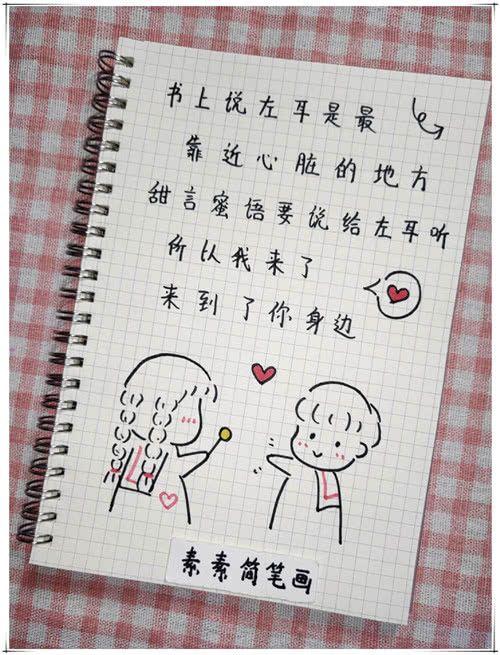 书上说左耳是最
靠近心脏的地方
甜言蜜语要说给左耳听
所以我来了
来到了你身边
素素简笔画